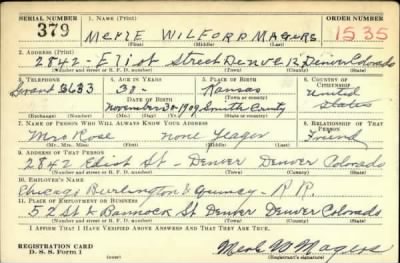 SERIAL NUMBER 1. NAME (Print) ORDER NUMBER
379 MERLE WILFORD MAGERS 1535
(First) (Middle) (Last)
2. ADDRESS (Print)
2842 - Eliot Street Denver Denver Colorado
(Number and street or R. F. D. number) (Town) (County) (State)
3. TELEPHONE 4. AGE IN YEARS 5. PLACE OF BIRTH 6. COUNTRY OF CITIZENSHIP
30 - Kansas United
DATE OF BIRTH (Town or county)
November 30-1909 Smith County States
(Exchange) (Number) (Mo.) (Day) (Yr.) (State or country)
7. NAME OF PERSON WHO WILL ALWAYS KNOW YOUR ADDRESS 8. RELATIONSHIP OF THAT PERSON
Mrs Rose none Yeager Friend
(Mr., Mrs., Miss) (First) (Middle) (Last)
9. ADDRESS OF THAT PERSON
2842 Eliot St - Denver Denver Colorado
(Number and street or R. F. D. number) (Town) (County) (State)
10. EMPLOYER'S NAME
Chicago Burlington & Quincy - R.R.
11. PLACE OF EMPLOYMENT OR BUSINESS
Bannock St Denver Denver Colorado
(Number and street or R. F. D. number) (Town) (County) (State)
I AFFIRM THAT I HAVE VERIFIED ABOVE ANSWERS AND THAT THEY ARE TRUE.
REGISTRATION CARD
D. S. S. Form 1 Merle W Magers
(Registrant's signature)